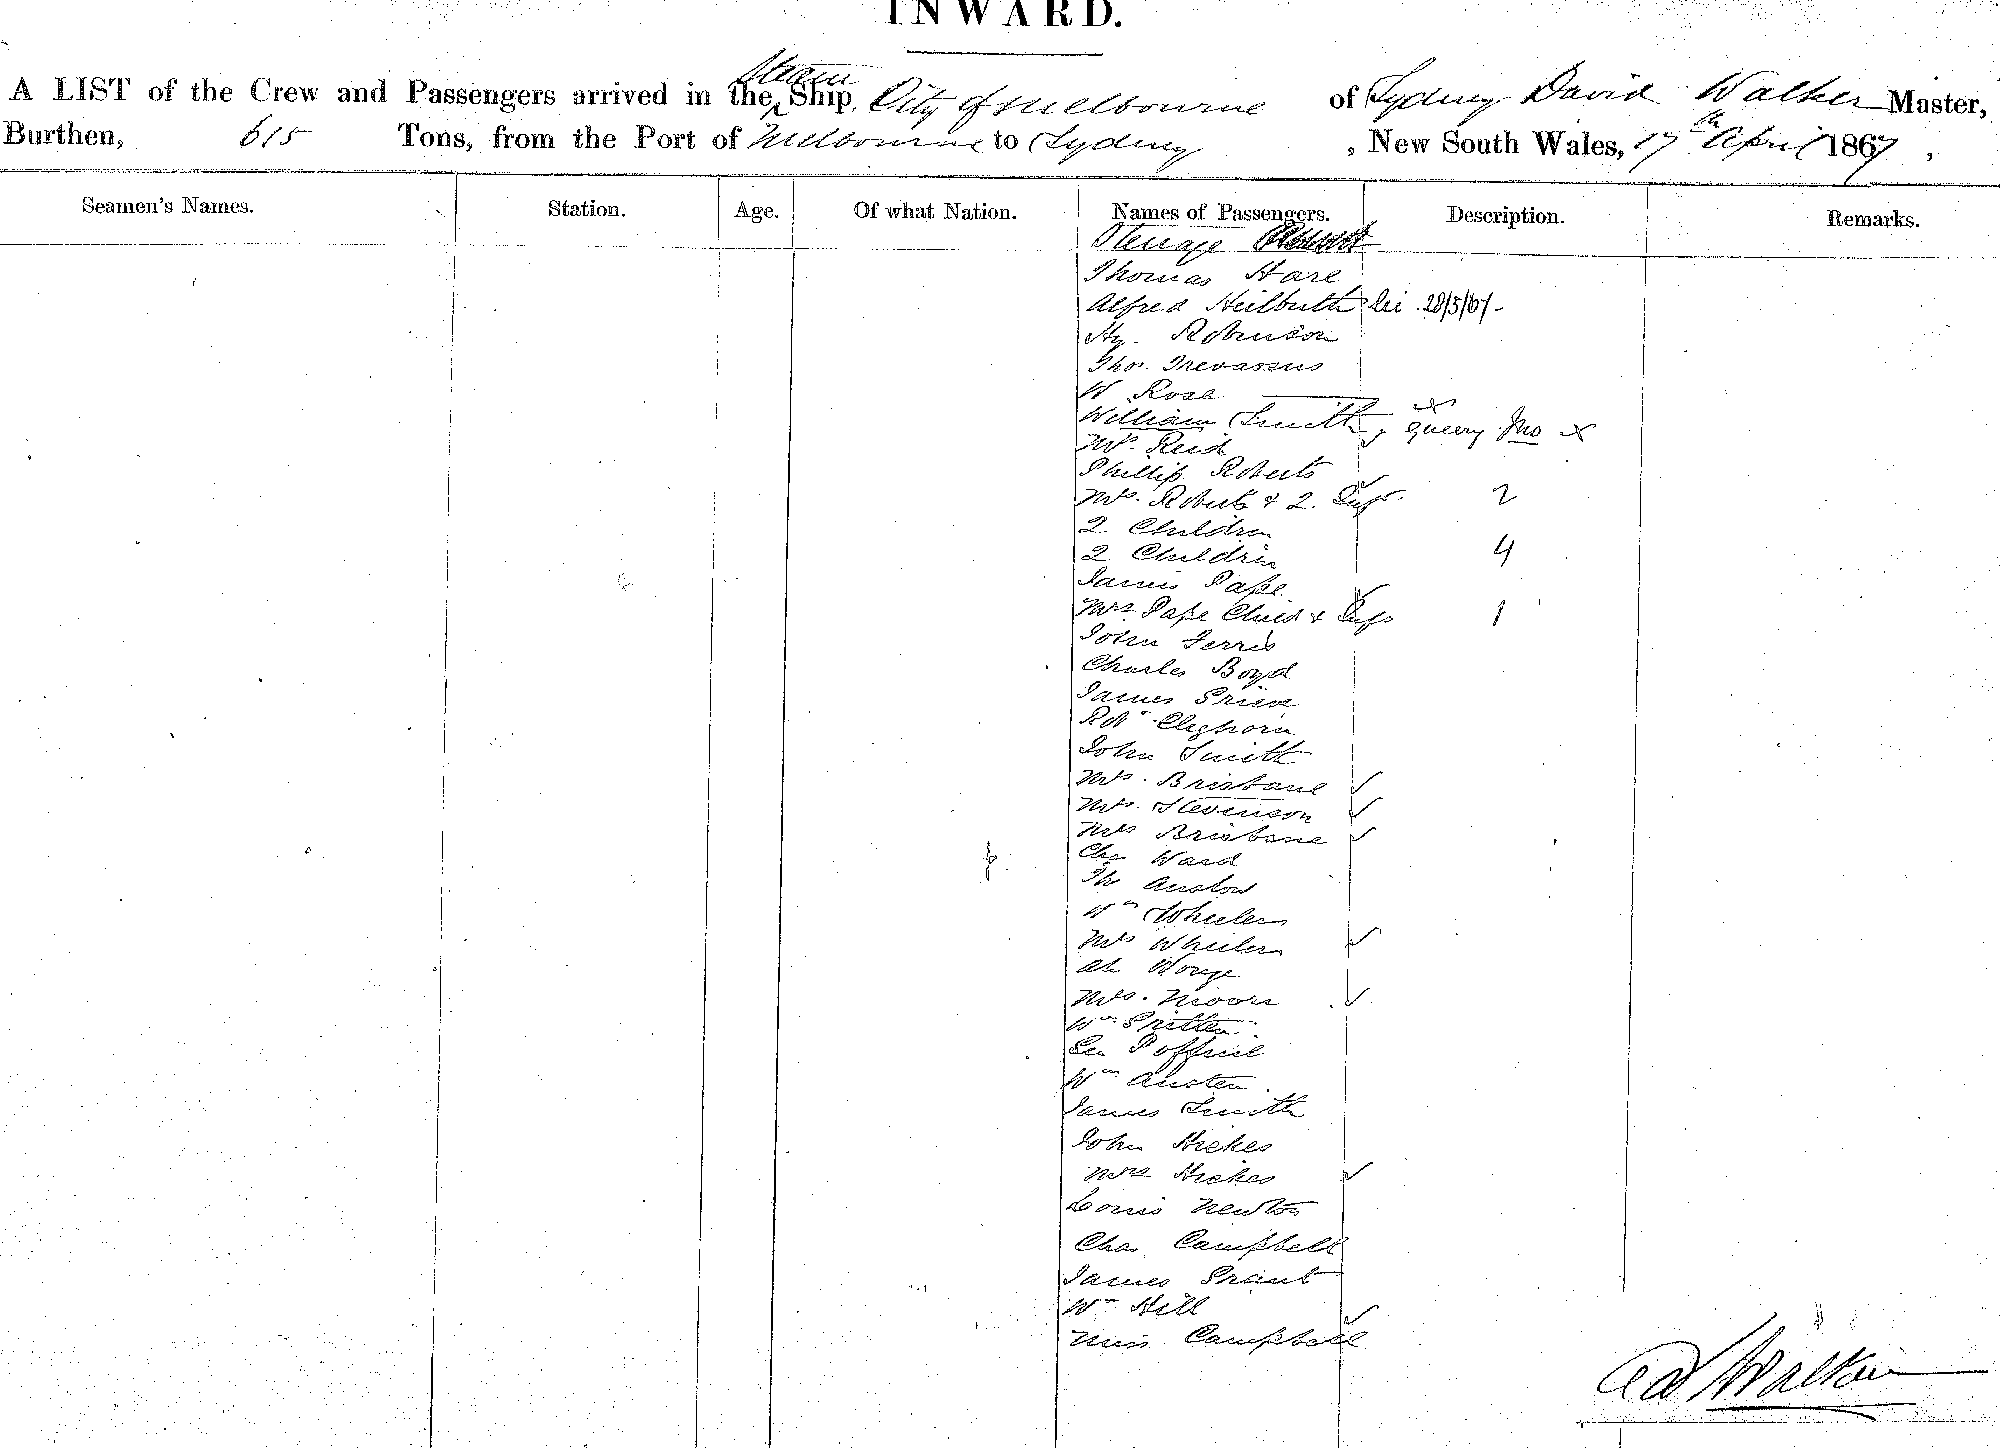 INWARD.
A LIST of the Crew and Passengers arrived in the Steam Ship, City of Melbourne of Sydney David Walker Master,
Burthen, 615 Tons, from the Port of Melbourne to Sydney, New South Wales, 17th April 1867,
Seamen's Names. Station. Age. Of what Nation. Names of Passengers. Description. Remarks.
Steerage
Thomas Hare
Alfred Heilbuth 28/5/67
Hy. Robinson
Thos. Trevassus
W Rose
William Smith, query Mo x
Mr. Reid
Phillip Roberts
Mrs. Roberts & 2. Infs. 2
2 Children
2 Children 4
James Pape
Mrs Pape Child & Infs 1
John Ferris
Charles Boyd
James Grieve
Robt Cleghorn
John Smith
Mrs. Brisbane ✓
Mrs. Stevenson ✓
Mrs Brisbane ✓
Chs Ward
Th Anslow
Wm Wheeler
Mrs Wheeler ✓
Ah
Mrs. Moore ✓
Wm
Geo
Wm Austen
James Smith
John Hickes
Mrs Hickes ✓
Louis Newton
Chas. Campbell
James Grant
Wm Hill
Miss Campbell ✓
Walker